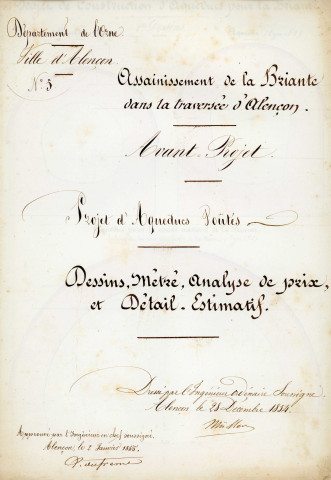 Département de l'Orne
Ville d'Alençon
N° 5
Assainissement de la Briante
dans la traversée d'Alençon.
Avant-Projet.
Projet d'Aqueducs Voûtés
Dessins, Métré, Analyse de prix,
et Détail-Estimatif.
Dressé par l'Ingénieur Ordinaire Soussigné
Alençon le 28 Décembre 1884.
Approuvé par l'Ingénieur en Chef soussigné
Alençon, le 2 Janvier 1885.